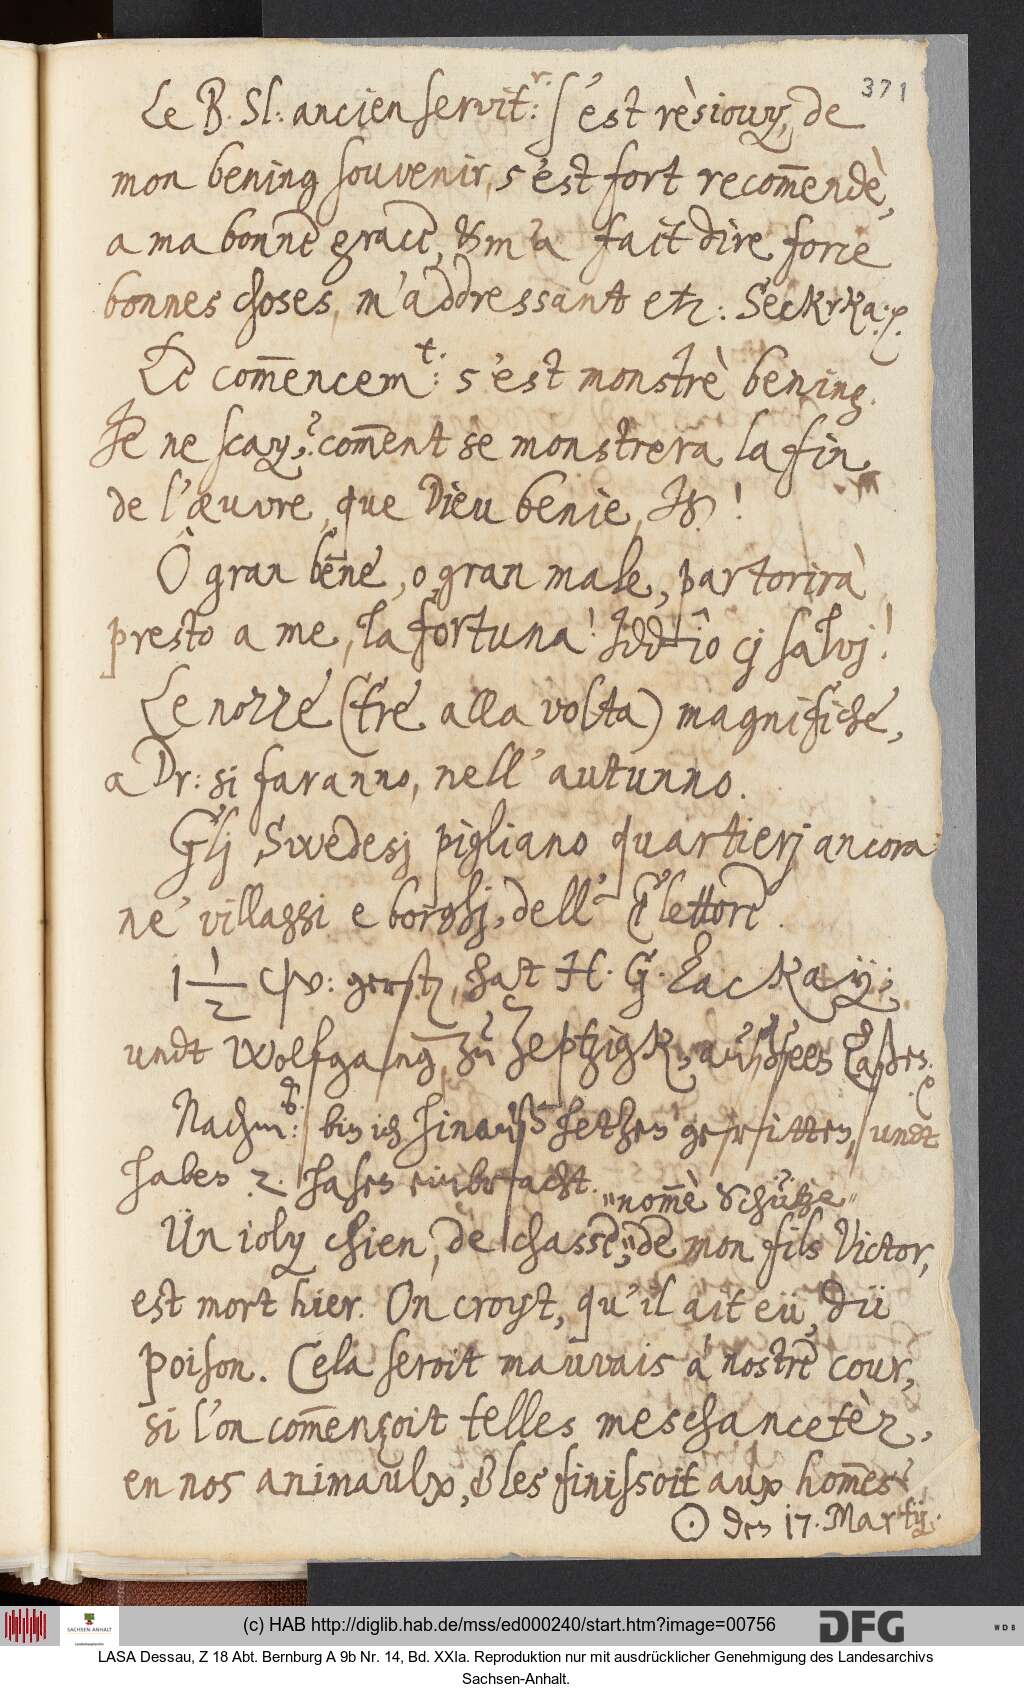 371
Le B. Sl: ancien servit:r s'est rèsiouy, de
mon bening souvenir, s'est fort recom̄endè,
a ma bonne grace, & m'a fait dire force
bonnes choses, m'addressant etz: Seckrka: p.
Le com̄encem:t s'est monstrè bening.
Je ne sçay, com̄ent se monstrera la fin,
de l'œuvre, que Dieu benie,
Ô gran bene, o gran male, partorirà
presto a me, la fortuna! Jddîo cj salvj!
Le nozze (tre alla volta) magnifiche,
a Dr: si faranno, nell' autunno.
Glj Swedesj pigliano quartierj ancora
ne' villaggi e borghj, dell' Elettore.
1 1/2 W: gerste, hat H. G. Lackaÿ;
undt Wolfgang zu Zeptzigk, außseen laßen. p
Nachm: bin ich hinauß hetzen geritten, undt
haben 2 hasen einbracht.
"nom̄è Schütze"
Un ioly chien, de chasse, de mon fils Victor,
est mort hier. On croyt, qu'il ait eü, dü
poison. Cela seroit mauvais a nostre cour,
si l'on com̄ençoit telles meschancetèz,
en nos animaulx, & les finissoit aux hom̄es.
☉ den 17. Martij.
(c) HAB http://diglib.hab.de/mss/ed000240/start.htm?image=00756
SACHSEN-ANHALT
DFG
WDB
LASA Dessau, Z 18 Abt. Bernburg A 9b Nr. 14, Bd. XXIa. Reproduktion nur mit ausdrücklicher Genehmigung des Landesarchivs
Sachsen-Anhalt.